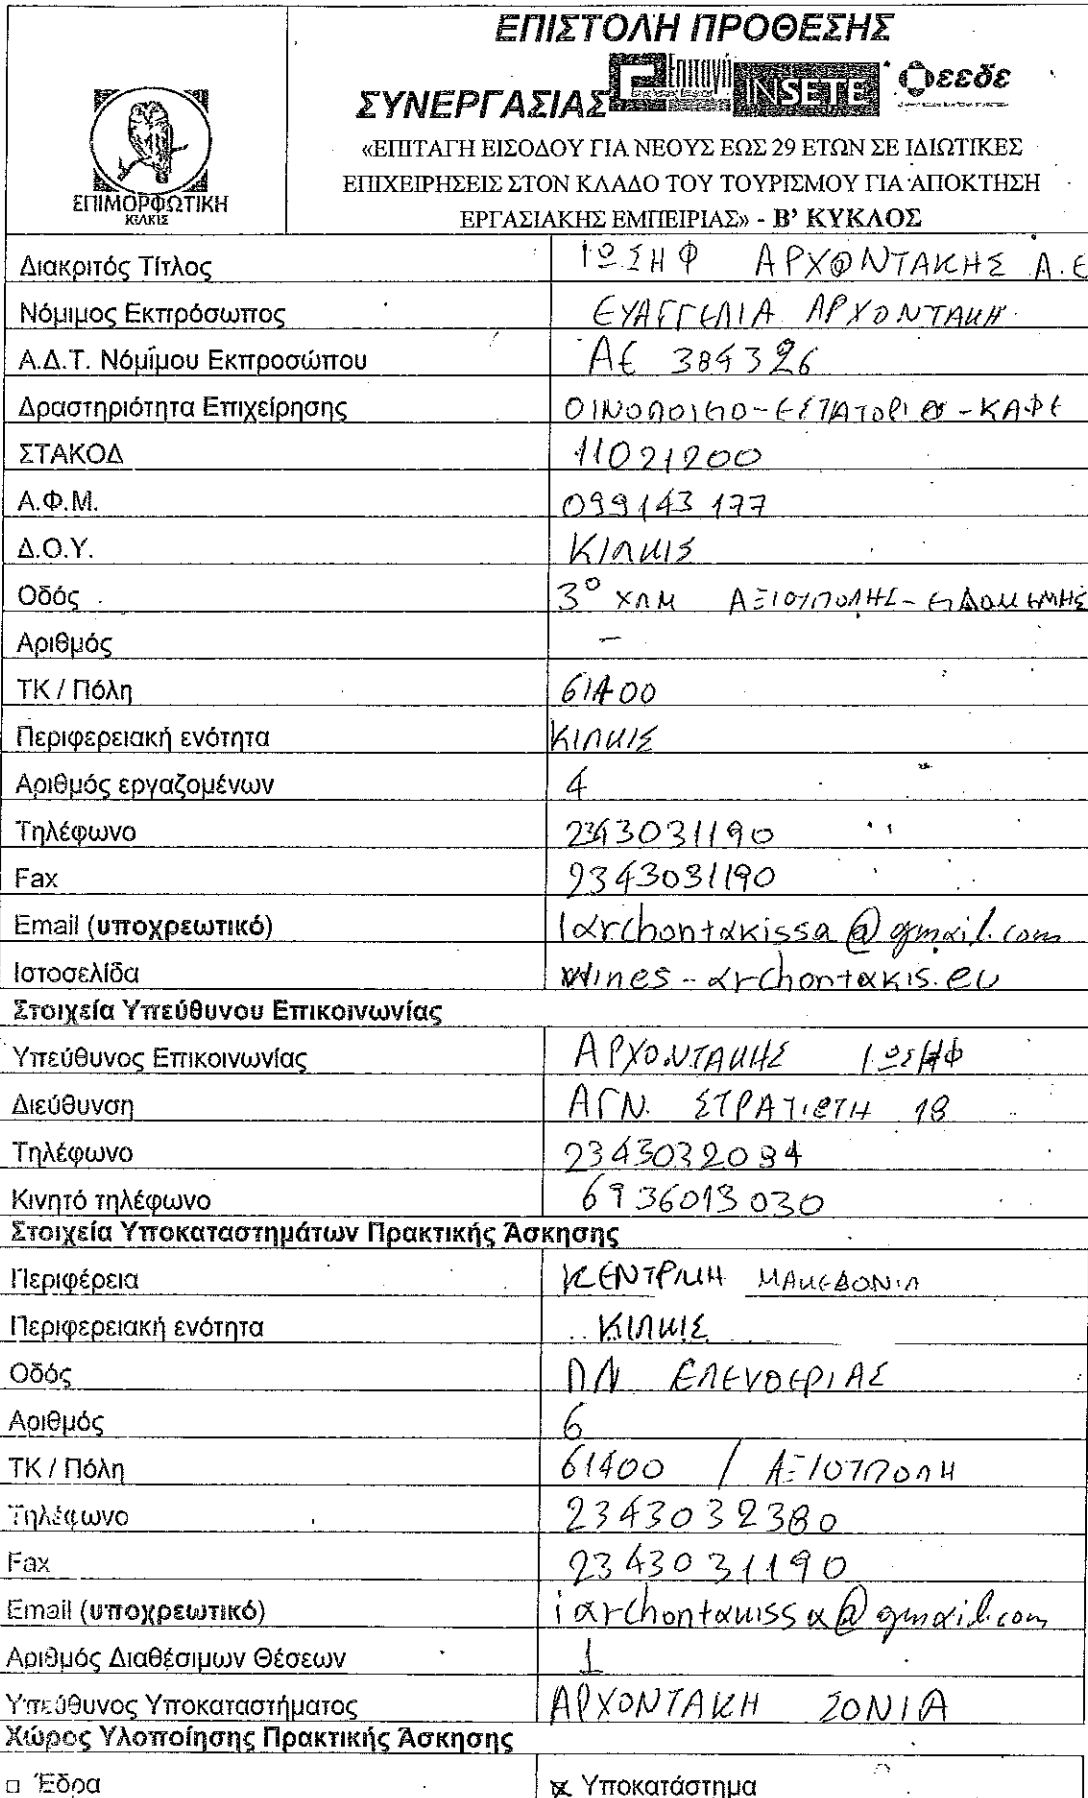 ΕΠΙΣΤΟΛΗ ΠΡΟΘΕΣΗΣ
ΣΥΝΕΡΓΑΣΙΑΣ Επιταγή INSETE εεδε
ΕΠΙΜΟΡΦΩΤΙΚΗ
ΚΙΛΚΙΣ
«ΕΠΙΤΑΓΗ ΕΙΣΟΔΟΥ ΓΙΑ ΝΕΟΥΣ ΕΩΣ 29 ΕΤΩΝ ΣΕ ΙΔΙΩΤΙΚΕΣ
ΕΠΙΧΕΙΡΗΣΕΙΣ ΣΤΟΝ ΚΛΑΔΟ ΤΟΥ ΤΟΥΡΙΣΜΟΥ ΓΙΑ ΑΠΟΚΤΗΣΗ
ΕΡΓΑΣΙΑΚΗΣ ΕΜΠΕΙΡΙΑΣ» - Β' ΚΥΚΛΟΣ
Διακριτός Τίτλος ΙΩΣΗΦ ΑΡΧΟΝΤΑΚΗΣ Α.Ε
Νόμιμος Εκπρόσωπος ΕΥΑΓΓΕΛΙΑ ΑΡΧΟΝΤΑΚΗ
Α.Δ.Τ. Νόμιμου Εκπροσώπου ΑΕ 384326
Δραστηριότητα Επιχείρησης ΟΙΝΟΠΟΙΕΙΟ-ΕΣΤΙΑΤΟΡΙΟ-ΚΑΦΕ
ΣΤΑΚΟΔ 11021200
Α.Φ.Μ. 099143177
Δ.Ο.Υ. ΚΙΛΚΙΣ
Οδός 3ο ΧΛΜ ΑΞΙΟΥΠΟΛΗΣ-ΕΙΔΟΜΕΝΗΣ
Αριθμός -
ΤΚ / Πόλη 61400
Περιφερειακή ενότητα ΚΙΛΚΙΣ
Αριθμός εργαζομένων 4
Τηλέφωνο 2343031190
Fax 2343031190
Email (υποχρεωτικό) iarchontakissa@gmail.com
Ιστοσελίδα wines-archontakis.eu
Στοιχεία Υπεύθυνου Επικοινωνίας
Υπεύθυνος Επικοινωνίας ΑΡΧΟΝΤΑΚΗΣ ΙΩΣΗΦ
Διεύθυνση ΑΓΝ. ΣΤΡΑΤΙΩΤΗ 18
Τηλέφωνο 2343032094
Κινητό τηλέφωνο 6936013030
Στοιχεία Υποκαταστημάτων Πρακτικής Άσκησης
Περιφέρεια ΚΕΝΤΡΙΚΗ ΜΑΚΕΔΟΝΙΑ
Περιφερειακή ενότητα ΚΙΛΚΙΣ
Οδός ΠΛ ΕΛΕΥΘΕΡΙΑΣ
Αριθμός 6
ΤΚ / Πόλη 61400 / ΑΞΙΟΥΠΟΛΗ
Τηλέφωνο 2343032380
Fax 2343031190
Email (υποχρεωτικό) iarchontakissa@gmail.com
Αριθμός Διαθέσιμων Θέσεων 1
Υπεύθυνος Υποκαταστήματος ΑΡΧΟΝΤΑΚΗ ΣΟΝΙΑ
Χώρος Υλοποίησης Πρακτικής Άσκησης
□ Έδρα ☒ Υποκατάστημα